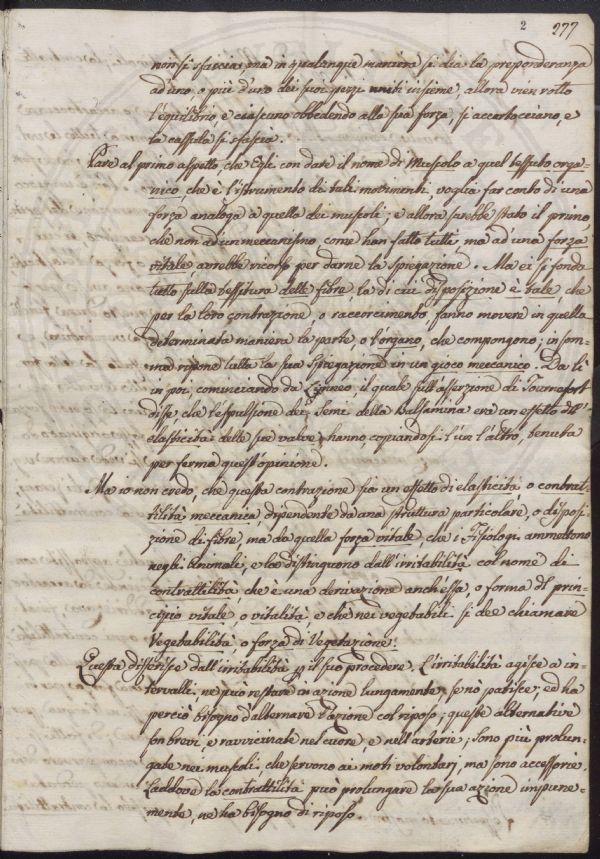 2 277
non si sfascia; ma in qualunque maniera si dia la preponderanza
ad uno, o più d'uno dei suoi pezzi uniti insieme, allora vien rotto
l'equilibrio, e ciascuno obbedendo alla sua forza, si accartocciano, e
la cassula si sfascia.
Pare al primo aspetto, che Egli con dare il nome di Muscolo a quel tessuto orga-
nico, che è l'istrumento di tali movimenti voglia far conto di una
forza analoga a quella dei muscoli; e allora sarebbe stato il primo,
che non ad un meccanismo come han fatto tutti, ma ad una forza
vitale avrebbe ricorso per darne la spiegazione. Ma ei si fonda
tutto sulla tessitura delle fibre, la di cui disposizione è tale, che
per la loro contrazione o raccorcimento fanno movere in quella
determinata maniera la parte, o l'organo, che compongono; in som-
ma ripone tutta la sua spiegazione in un gioco meccanico. Da lì
in poi, cominciando da Linneo, il quale sull'asserzione di Tournefort
disse, che l'espulsione dei Semi della Balsamina era un effetto dell'
elasticità delle sue valve, hanno, copiandosi l'un l'altro, tenuta
per ferma quest'opinione.
Ma io non credo, che questa contrazione sia un effetto di elasticità, o contrat-
tilità meccanica, dipendente da una struttura particolare, o disposi-
zione di fibre, ma da quella forza vitale, che i Fisiologi ammettono
negli Animali, e la distinguono dall'irritabilità col nome di
contrattilità, che è una derivazione anch'essa, o forma del prin-
cipio vitale o vitalità, e che nei vegetabili si dee chiamare
Vegetabilità, o forza di Vegetazione.
Questa differisce dall'irritabilità per il suo procedere. L'irritabilità agisce a in-
tervalli, ne può restare in azione lungamente, se nò patisce; ed ha
perciò bisogno d'alternare l'azione col riposo; queste alternative
son brevi, e ravvicinate nel cuore, e nell'arterie; sono più prolun-
gate nei muscoli, che servono ai moti volontari, ma sono accessorie.
Laddove la contrattilità può prolungare la sua azione impune-
mente, ne ha bisogno di riposo.